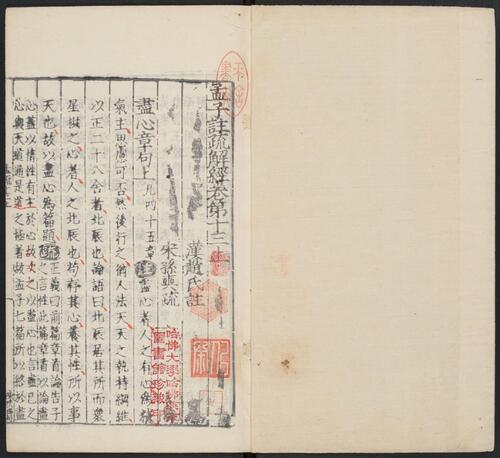 孟子註疏解經卷第十三上
漢趙氏註
宋孫奭疏
盡心章句上凡四十五章盡心者人之有心為精
氣主思慮可否然後行之猶人法天天之執持綱維
以正二十八舍者北辰也論語曰北辰居其所而衆
星拱之心者人之北辰也苟存其心養其性所以事
天也故以盡心為篇題正義曰前篇章首論告子
之言性此篇章首以論盡
心蓋以情性有主於心故次之以盡心也言盡己之
心與天道通是道之極者故孟子七篇所以終於盡
哈佛大學哈佛燕京
圖書館珍藏印